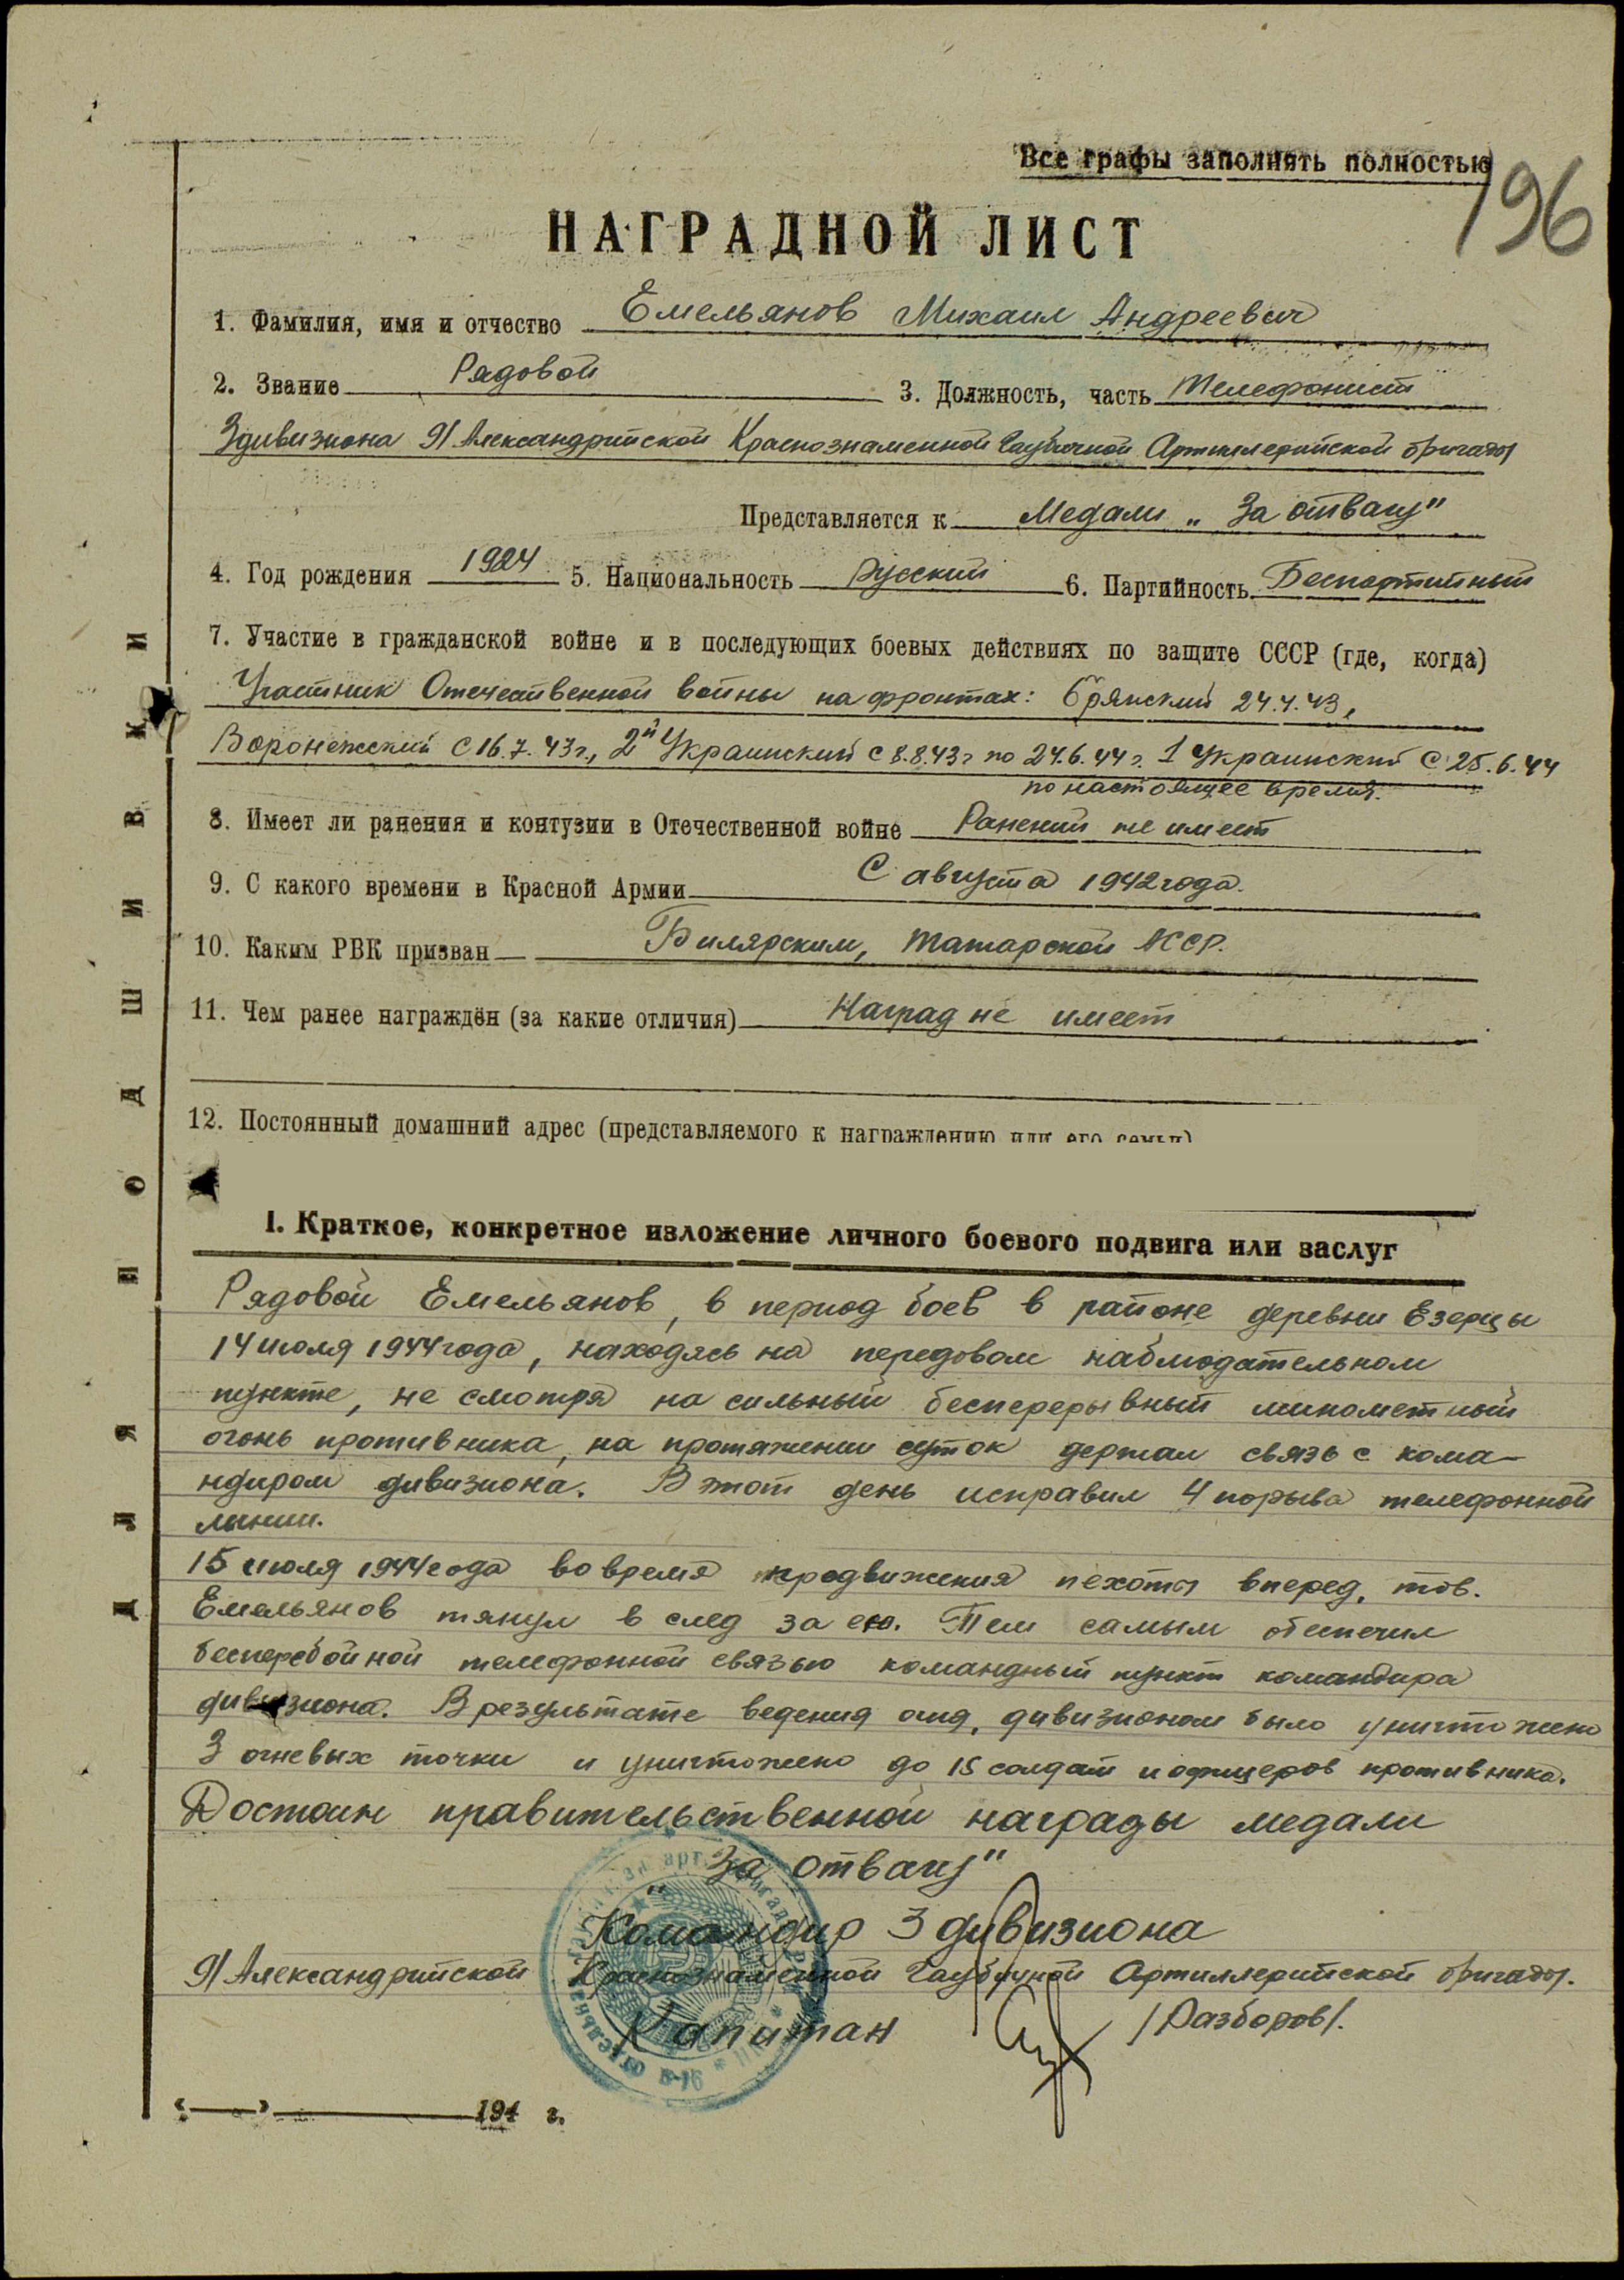 Все графы заполнять полностью
196
НАГРАДНОЙ ЛИСТ
1. Фамилия, имя и отчество Емельянов Михаил Андреевич
2. Звание Рядовой 3. Должность, часть Телефонист
3 дивизиона 91 Александрийской Краснознаменной Гаубичной Артиллерийской бригады
Представляется к Медали „За отвагу"
4. Год рождения 1924 5. Национальность Русский 6. Партийность Беспартийный
7. Участие в гражданской войне и в последующих боевых действиях по защите СССР (где, когда)
Участник Отечественной войны на фронтах: Брянский 24.4.43,
Воронежский с 16.7.43г., 2й Украинский с 8.8.43г по 24.6.44г. 1 Украинский с 25.6.44
по настоящее время.
8. Имеет ли ранения и контузии в Отечественной войне Ранений не имеет
9. С какого времени в Красной Армии С августа 1942 года.
10. Каким РВК призван Билярским, Татарской АССР.
11. Чем ранее награждён (за какие отличия) Наград не имеет
12. Постоянный домашний адрес (представляемого к награждению или его семьи)
I. Краткое, конкретное изложение личного боевого подвига или заслуг
Рядовой Емельянов, в период боев в районе деревни Езерцы
14 июля 1944 года, находясь на передовом наблюдательном
пункте, не смотря на сильный бесперерывный минометный
огонь противника, на протяжении суток держал связь с кома-
ндиром дивизиона. В этот день исправил 4 порыва телефонной
линии.
15 июля 1944 года во время продвижения пехоты вперед, тов.
Емельянов тянул в след за ею. Тем самым обеспечил
бесперебойной телефонной связью командный пункт командира
дивизиона. В результате ведения огня, дивизионом было уничтожено
3 огневых точки и уничтожено до 15 солдат и офицеров противника.
Достоин правительственной награды медали
„За отвагу"
Командир 3 дивизиона
91 Александрийской Краснознаменной Гаубичной Артиллерийской бригады.
Капитан /Разборов/.
« » 194 г.
ДЛЯ ПОДШИВКИ